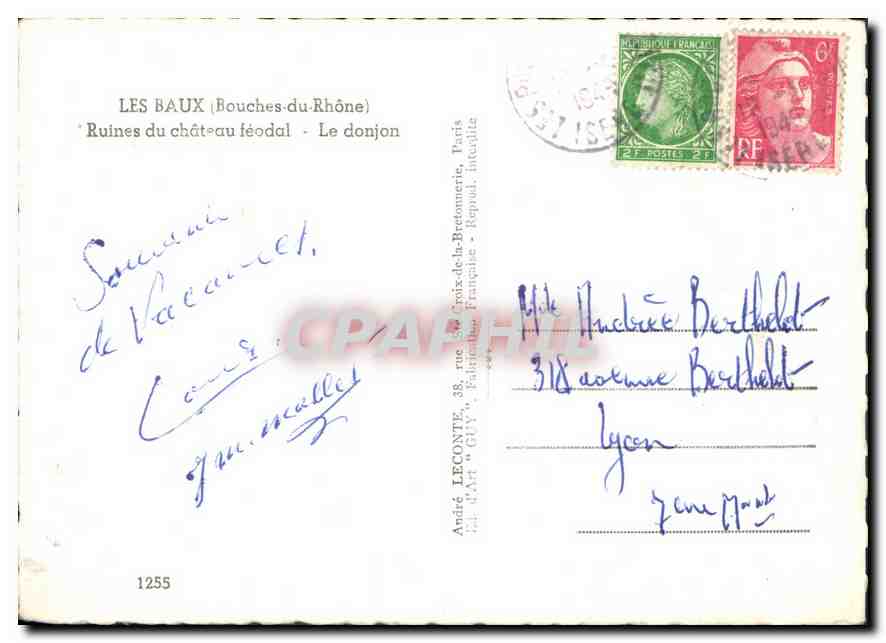 LES BAUX (Bouches-du-Rhône)
Ruines du château féodal - Le donjon
Souvenir
de Vacances.
1255
André LECONTE, 38, rue Ste-Croix-de-la-Bretonnerie, Paris
Ed. d'Art "GUY", Fabrication Française - Reprod. interdite
CPAPHIL
REPUBLIQUE FRANÇAISE
2F POSTES 2F
6F
POSTES
RF
194
ISERE
194
ISERE
Mlle Andrée Berthelot
318 avenue Berthelot
Lyon